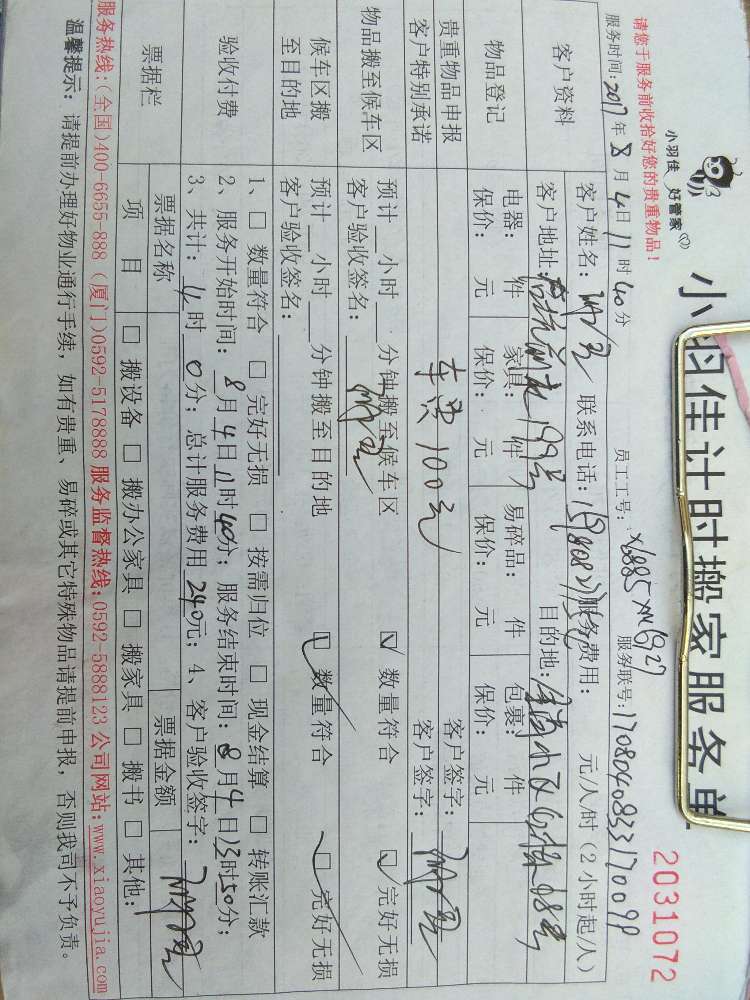 小羽佳 好管家
小羽佳计时搬家服务单
2031072
请您于服务前收拾好您的贵重物品！
员工工号：
服务联号：17080408331700
服务时间：2017年8月4日11时40分
客户资料
客户姓名：
联系电话：
服务费用： 元/人/时（2小时起/人）
客户地址：
目的地：
物品登记
电器： 件 家具： 件 易碎品： 件 包裹： 件
保价： 元 保价： 元 保价： 元 保价： 元
贵重物品申报
车费100元
客户签字：
客户特别承诺
客户签字：
物品搬至候车区
预计 小时 分钟搬至候车区
数量符合
完好无损
客户验收签名：
候车区搬至目的地
预计 小时 分钟搬至目的地
数量符合
完好无损
客户验收签名：
验收付费
1、□ 数量符合 □ 完好无损 □ 按需归位 □ 现金结算 □ 转账汇款
2、服务开始时间：8月4日11时40分；服务结束时间：8月4日15时50分；
3、共计：4时0分；总计服务费用240元；4、客户验收签字：
票据栏
票据名称
票据金额
项 目
□ 搬设备 □ 搬办公家具 □ 搬家具 □ 搬书 □ 其他：
服务热线：(全国)400-6655-888 (厦门)0592-5178888 服务监督热线：0592-5888123 公司网站：www.xiaoyujia.com
温馨提示：请提前办理好物业通行手续，如有贵重、易碎或其它特殊物品请提前申报，否则我司不予负责。